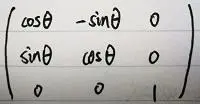 cosθ -sinθ 0
sinθ cosθ 0
0 0 1